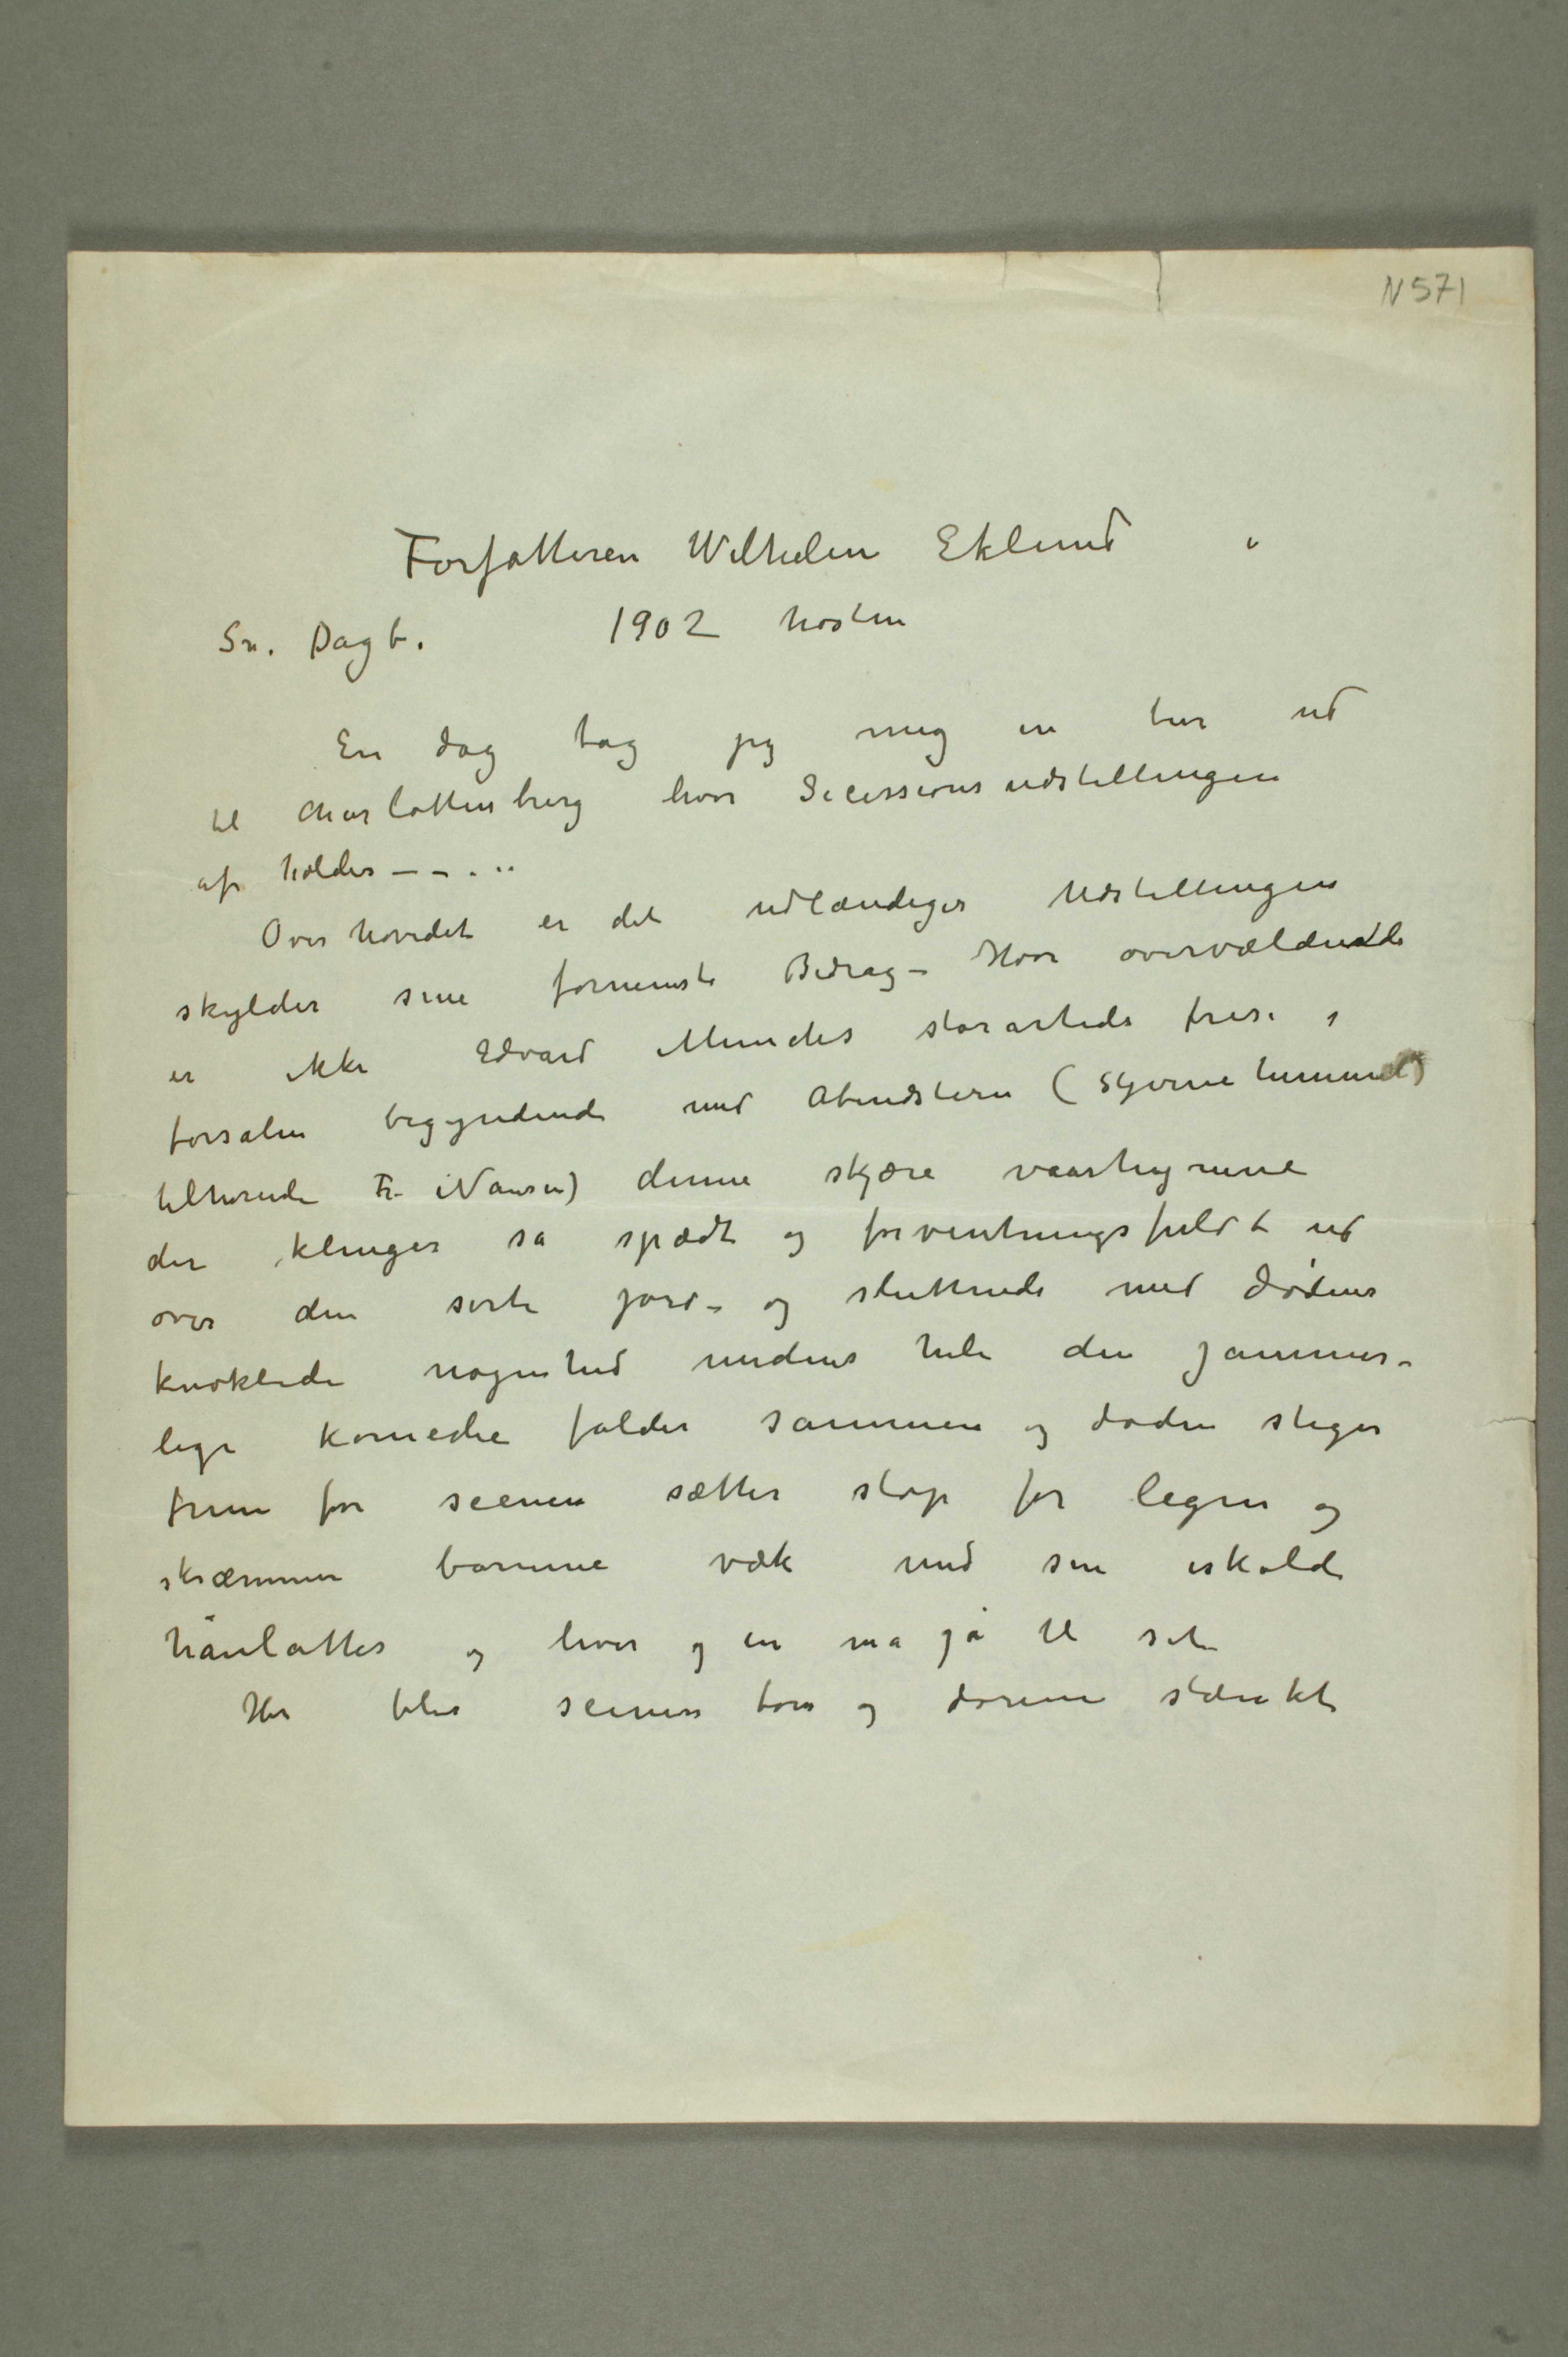 N 571
Forfatteren Wilhelm Eklund i
Sv. Dagb. 1902 høsten
En dag tog jeg mig en tur ud
til Charlottenburg hvor Secessionsudstillingen
afholdes – – . . .
Overhovedet er det udlændiger Udstillingen
skylder sine fornemste Bidrag – Hvor overvældende
er ikke Edvard Munchs storartede frise i
forsalen begyndende med Abendstern (Stjernehimmel)
tilhørende Fr. Nansen) denne skjære vaarhymne
der klinger så spædt og forventningsfuldt ud
over den sorte jord – og sluttende med dødens
knoklede nøgenhed medens hele den jammer-
lige komedie falder sammen og døden stiger
frem for scenen sætter stop for legen og
skræmmer børnene væk med sin iskolde
hånlatter og hver og en må gå til sit
Her blir scenen tom og dørene stænkt